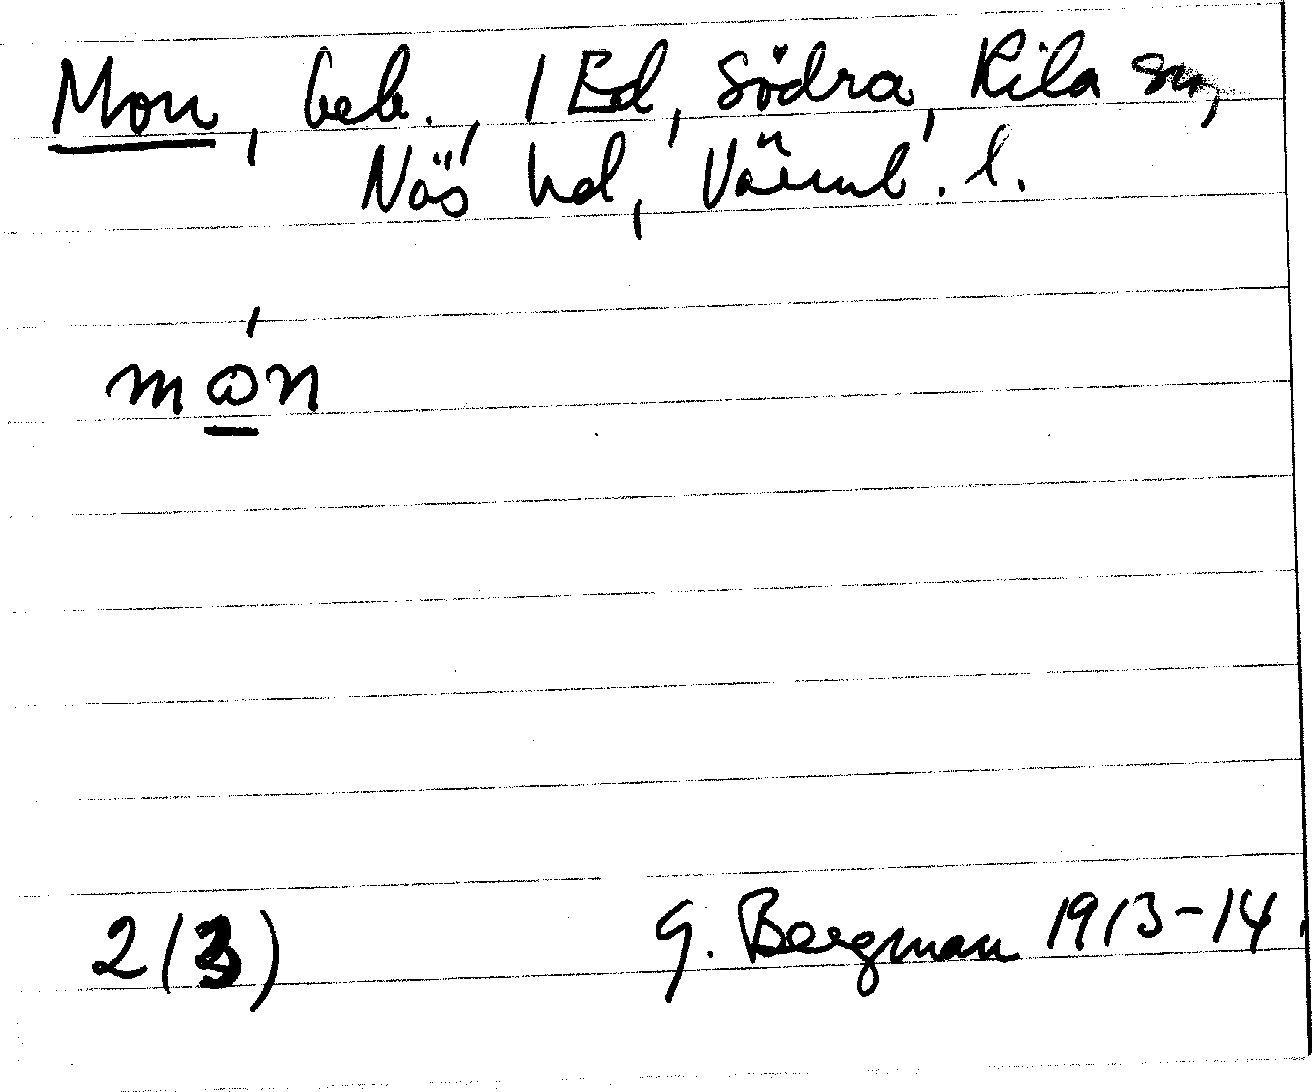 Mon, beb., 1 Ed, Södra, Kila sn,
Näs hd, Värml. l.
mɷ̲́n
2(3)
G. Bergman 1913-14.